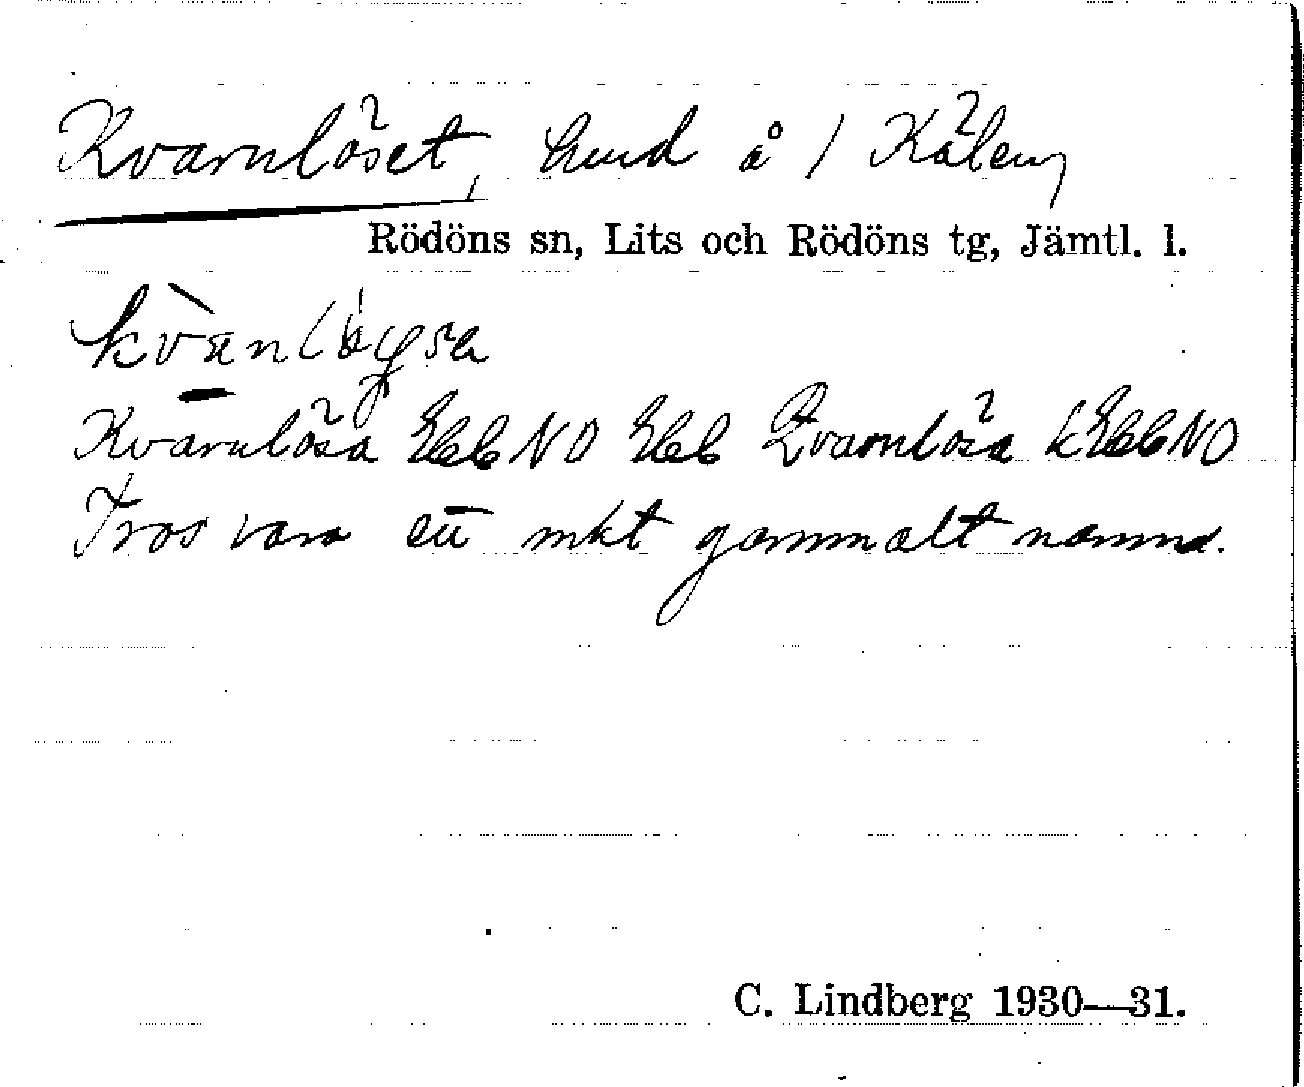 Kvarnlöset, hmd å 1 Kälen,
Rödöns sn, Lits och Rödöns tg, Jämtl. l.
Kvarnlösa EkbNO Ekb Qvarnlösa kEkbNO
Tros vara ett mkt gammalt namn.
C. Lindberg 1930—31.